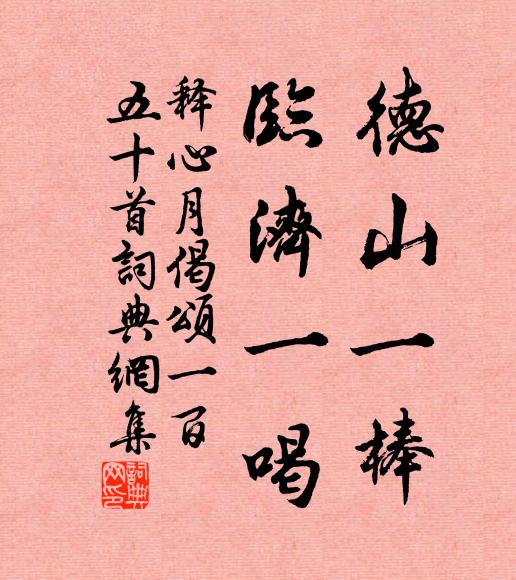 德山一棒
臨濟一喝
释心月偈頌一百
五十首詞典網集
詞典
网印